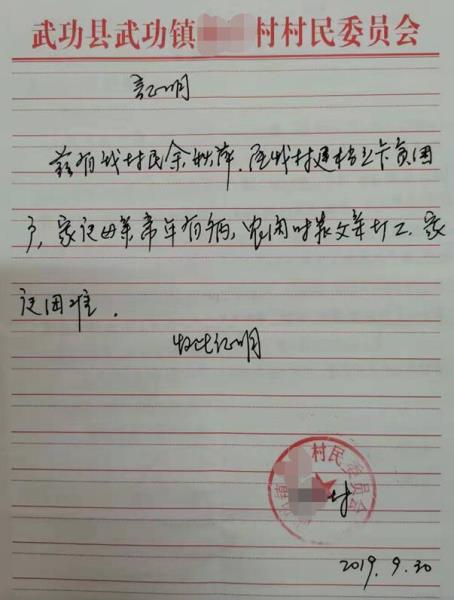 武功县武功镇 村村民委员会
证明
兹有我村民余秋萍,系我村建档立卡贫困
户,家里母亲常年有病,农闲时靠父亲打工,家
庭困难。
特此证明
镇 村民委员会
村
2019.9.30